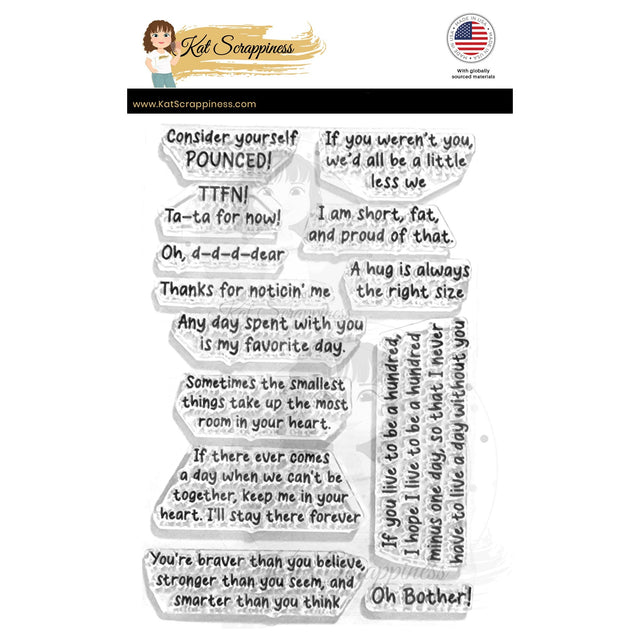 Kat Scrappiness
MADE IN USA
With globally
sourced materials
www.KatScrappiness.com
Consider yourself
POUNCED!
If you weren't you,
we'd all be a little
less we
TTFN!
Ta-ta for now!
I am short, fat,
and proud of that.
Oh, d-d-d-dear
A hug is always
the right size
Thanks for noticin' me
Any day spent with you
is my favorite day.
Sometimes the smallest
things take up the most
room in your heart.
If you live to be a hundred,
I hope I live to be a hundred
minus one day, so that I never
have to live a day without you
If there ever comes
a day when we can't be
together, keep me in your
heart. I'll stay there forever
You're braver than you believe,
stronger than you seem, and
smarter than you think
Oh Bother!
Kat Scrappiness
Kat Scrappiness